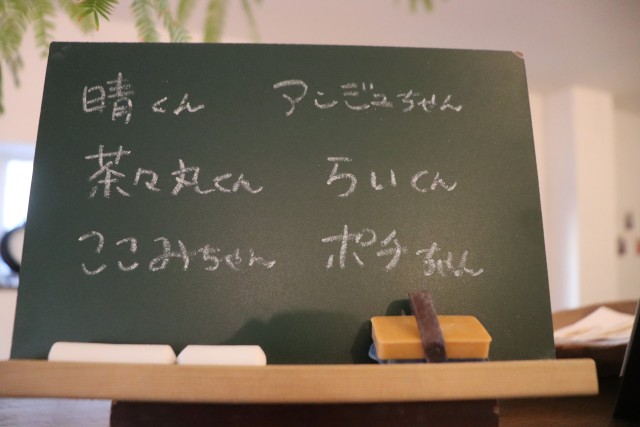 晴くん アンジュちゃん
茶々丸くん らいくん
ここみちゃん ポチちゃん